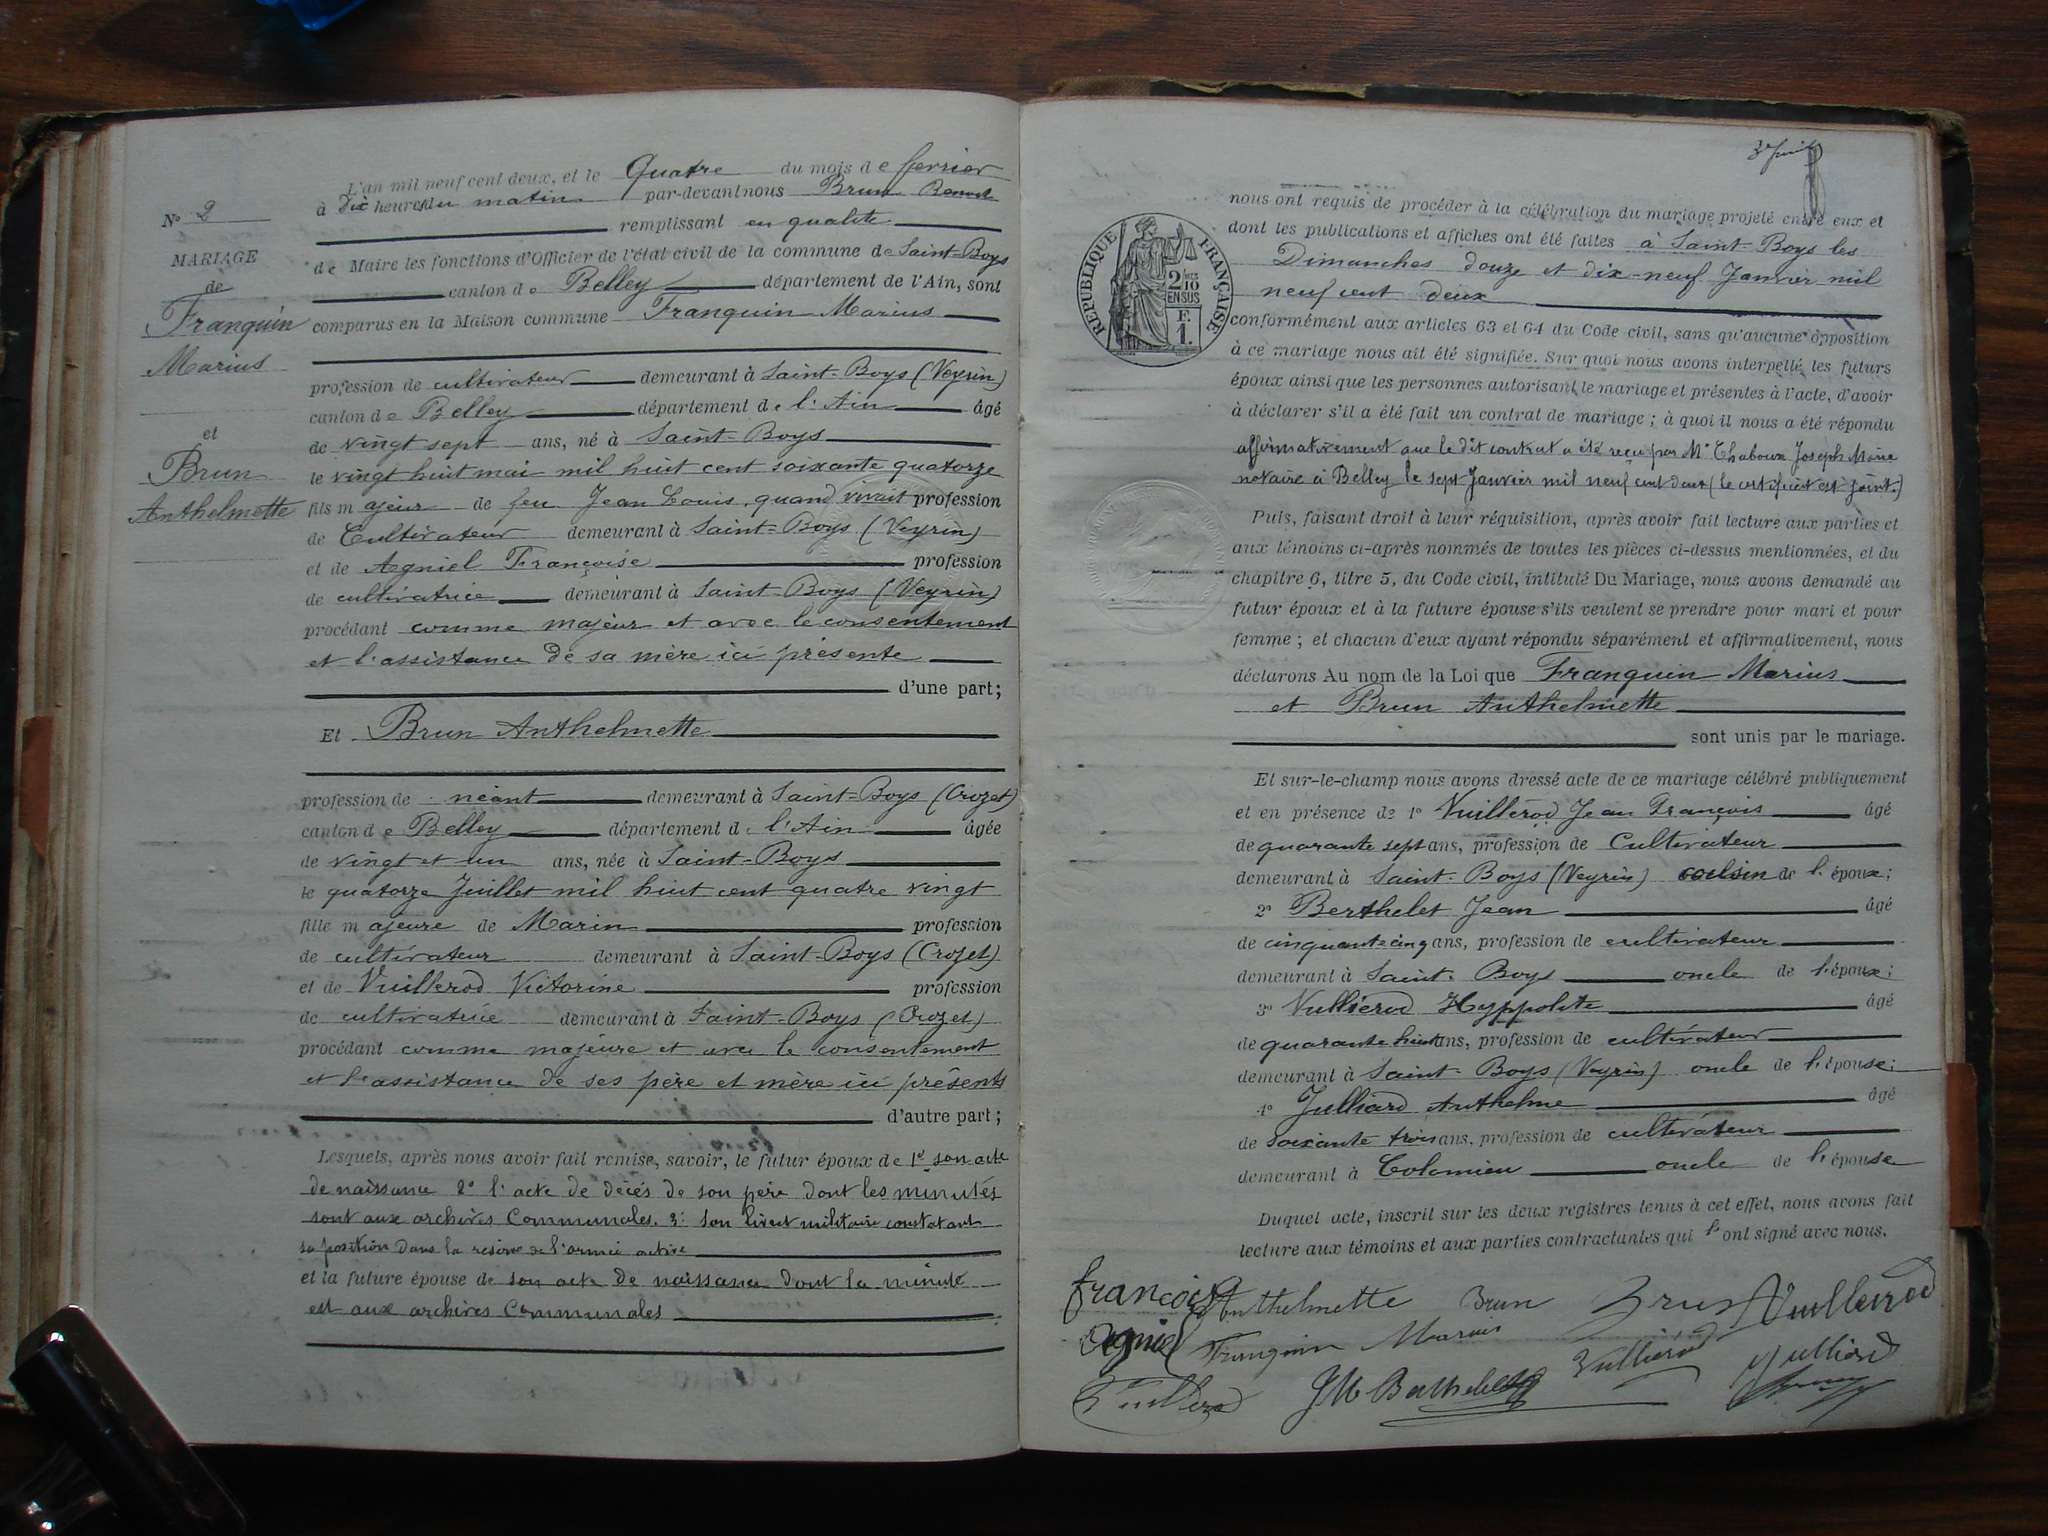 L'an mil neuf cent deux, et le Quatre du mois de fevrier
à Dix heures du matin par-devant nous Brun Benoit
remplissant en qualité
de Maire les fonctions d'Officier de l'état civil de la commune de Saint-Boys
canton de Belley département de l'Ain, sont
comparus en la Maison commune Franquin Marius
profession de cultivateur demeurant à Saint-Boys (Veyrin)
canton de Belley département de l'Ain âgé
de vingt sept ans, né à Saint-Boys
le vingt huit mai mil huit cent soixante quatorze
fils majeur de feu Jean Louis, quand vivait profession
de Cultivateur demeurant à Saint-Boys (Veyrin)
et de Agniel Françoise profession
de cultivatrice demeurant à Saint-Boys (Veyrin)
procédant comme majeur et avec le consentement
et l'assistance de sa mère ici présente
d'une part;
Et Brun Anthelmette
profession de néant demeurant à Saint-Boys (Crozet)
canton de Belley département de l'Ain âgée
de vingt et un ans, née à Saint-Boys
le quatorze Juillet mil huit cent quatre vingt
fille majeure de Marin profession
de cultivateur demeurant à Saint-Boys (Crozet)
et de Vuillerod Victorine profession
de cultivatrice demeurant à Saint-Boys (Crozet)
procédant comme majeure et avec le consentement
et l'assistance de ses père et mère ici présents
d'autre part;
Lesquels, après nous avoir fait remise, savoir, le futur époux de 1° son acte
de naissance 2° l'acte de décés de son père dont les minutes
sont aux archives Communales. 3: son livret militaire constatant
sa position dans la reserve de l'armée active
et la future épouse de son acte de naissance dont la minute
est aux archives Communales
N° 2
MARIAGE
de
Franquin
Marius
et
Brun
Anthelmette
REPUBLIQUE FRANÇAISE
2/10 EN SUS
F.
1.
nous ont requis de procéder à la célébration du mariage projeté entre eux et
dont les publications et affiches ont été faites à Saint-Boys les
Dimanches douze et dix-neuf Janvier mil
neuf cent deux
conformément aux articles 63 et 64 du Code civil, sans qu'aucune opposition
à ce mariage nous ait été signifiée. Sur quoi nous avons interpellé les futurs
époux ainsi que les personnes autorisant le mariage et présentes à l'acte, d'avoir
à déclarer s'il a été fait un contrat de mariage; à quoi il nous a été répondu
affirmativement que le dit contrat a été reçu par Me Chaboux Joseph Marie
notaire à Belley le sept Janvier mil neuf cent deux (le certificat est joint.)
Puis, faisant droit à leur réquisition, après avoir fait lecture aux parties et
aux témoins ci-après nommés de toutes les pièces ci-dessus mentionnées, et du
chapitre 6, titre 5, du Code civil, intitulé Du Mariage, nous avons demandé au
futur époux et à la future épouse s'ils veulent se prendre pour mari et pour
femme; et chacun d'eux ayant répondu séparément et affirmativement, nous
déclarons Au nom de la Loi que Franquin Marius
et Brun Anthelmette
sont unis par le mariage.
Et sur-le-champ nous avons dressé acte de ce mariage célébré publiquement
et en présence de 1° Vuillerod Jean François âgé
de quarante sept ans, profession de Cultivateur
demeurant à Saint-Boys (Veyrin) cousin de l'époux;
2° Berthelet Jean âgé
de cinquante cinq ans, profession de cultivateur
demeurant à Saint-Boys oncle de l'époux;
3° Vullierod Hyppolite âgé
de quarante huit ans, profession de cultivateur
demeurant à Saint-Boys (Veyrin) oncle de l'épouse;
4° Julliard Anthelme âgé
de soixante trois ans, profession de cultivateur
demeurant à Colomieu oncle de l'épouse
Duquel acte, inscrit sur les deux registres tenus à cet effet, nous avons fait
lecture aux témoins et aux parties contractantes qui ont signé avec nous.
francoise Anthelmette Brun Brun Vuillerod
Agniel Franquin Marius Vulliérod Julliard
Vuillerod JM Berthelet